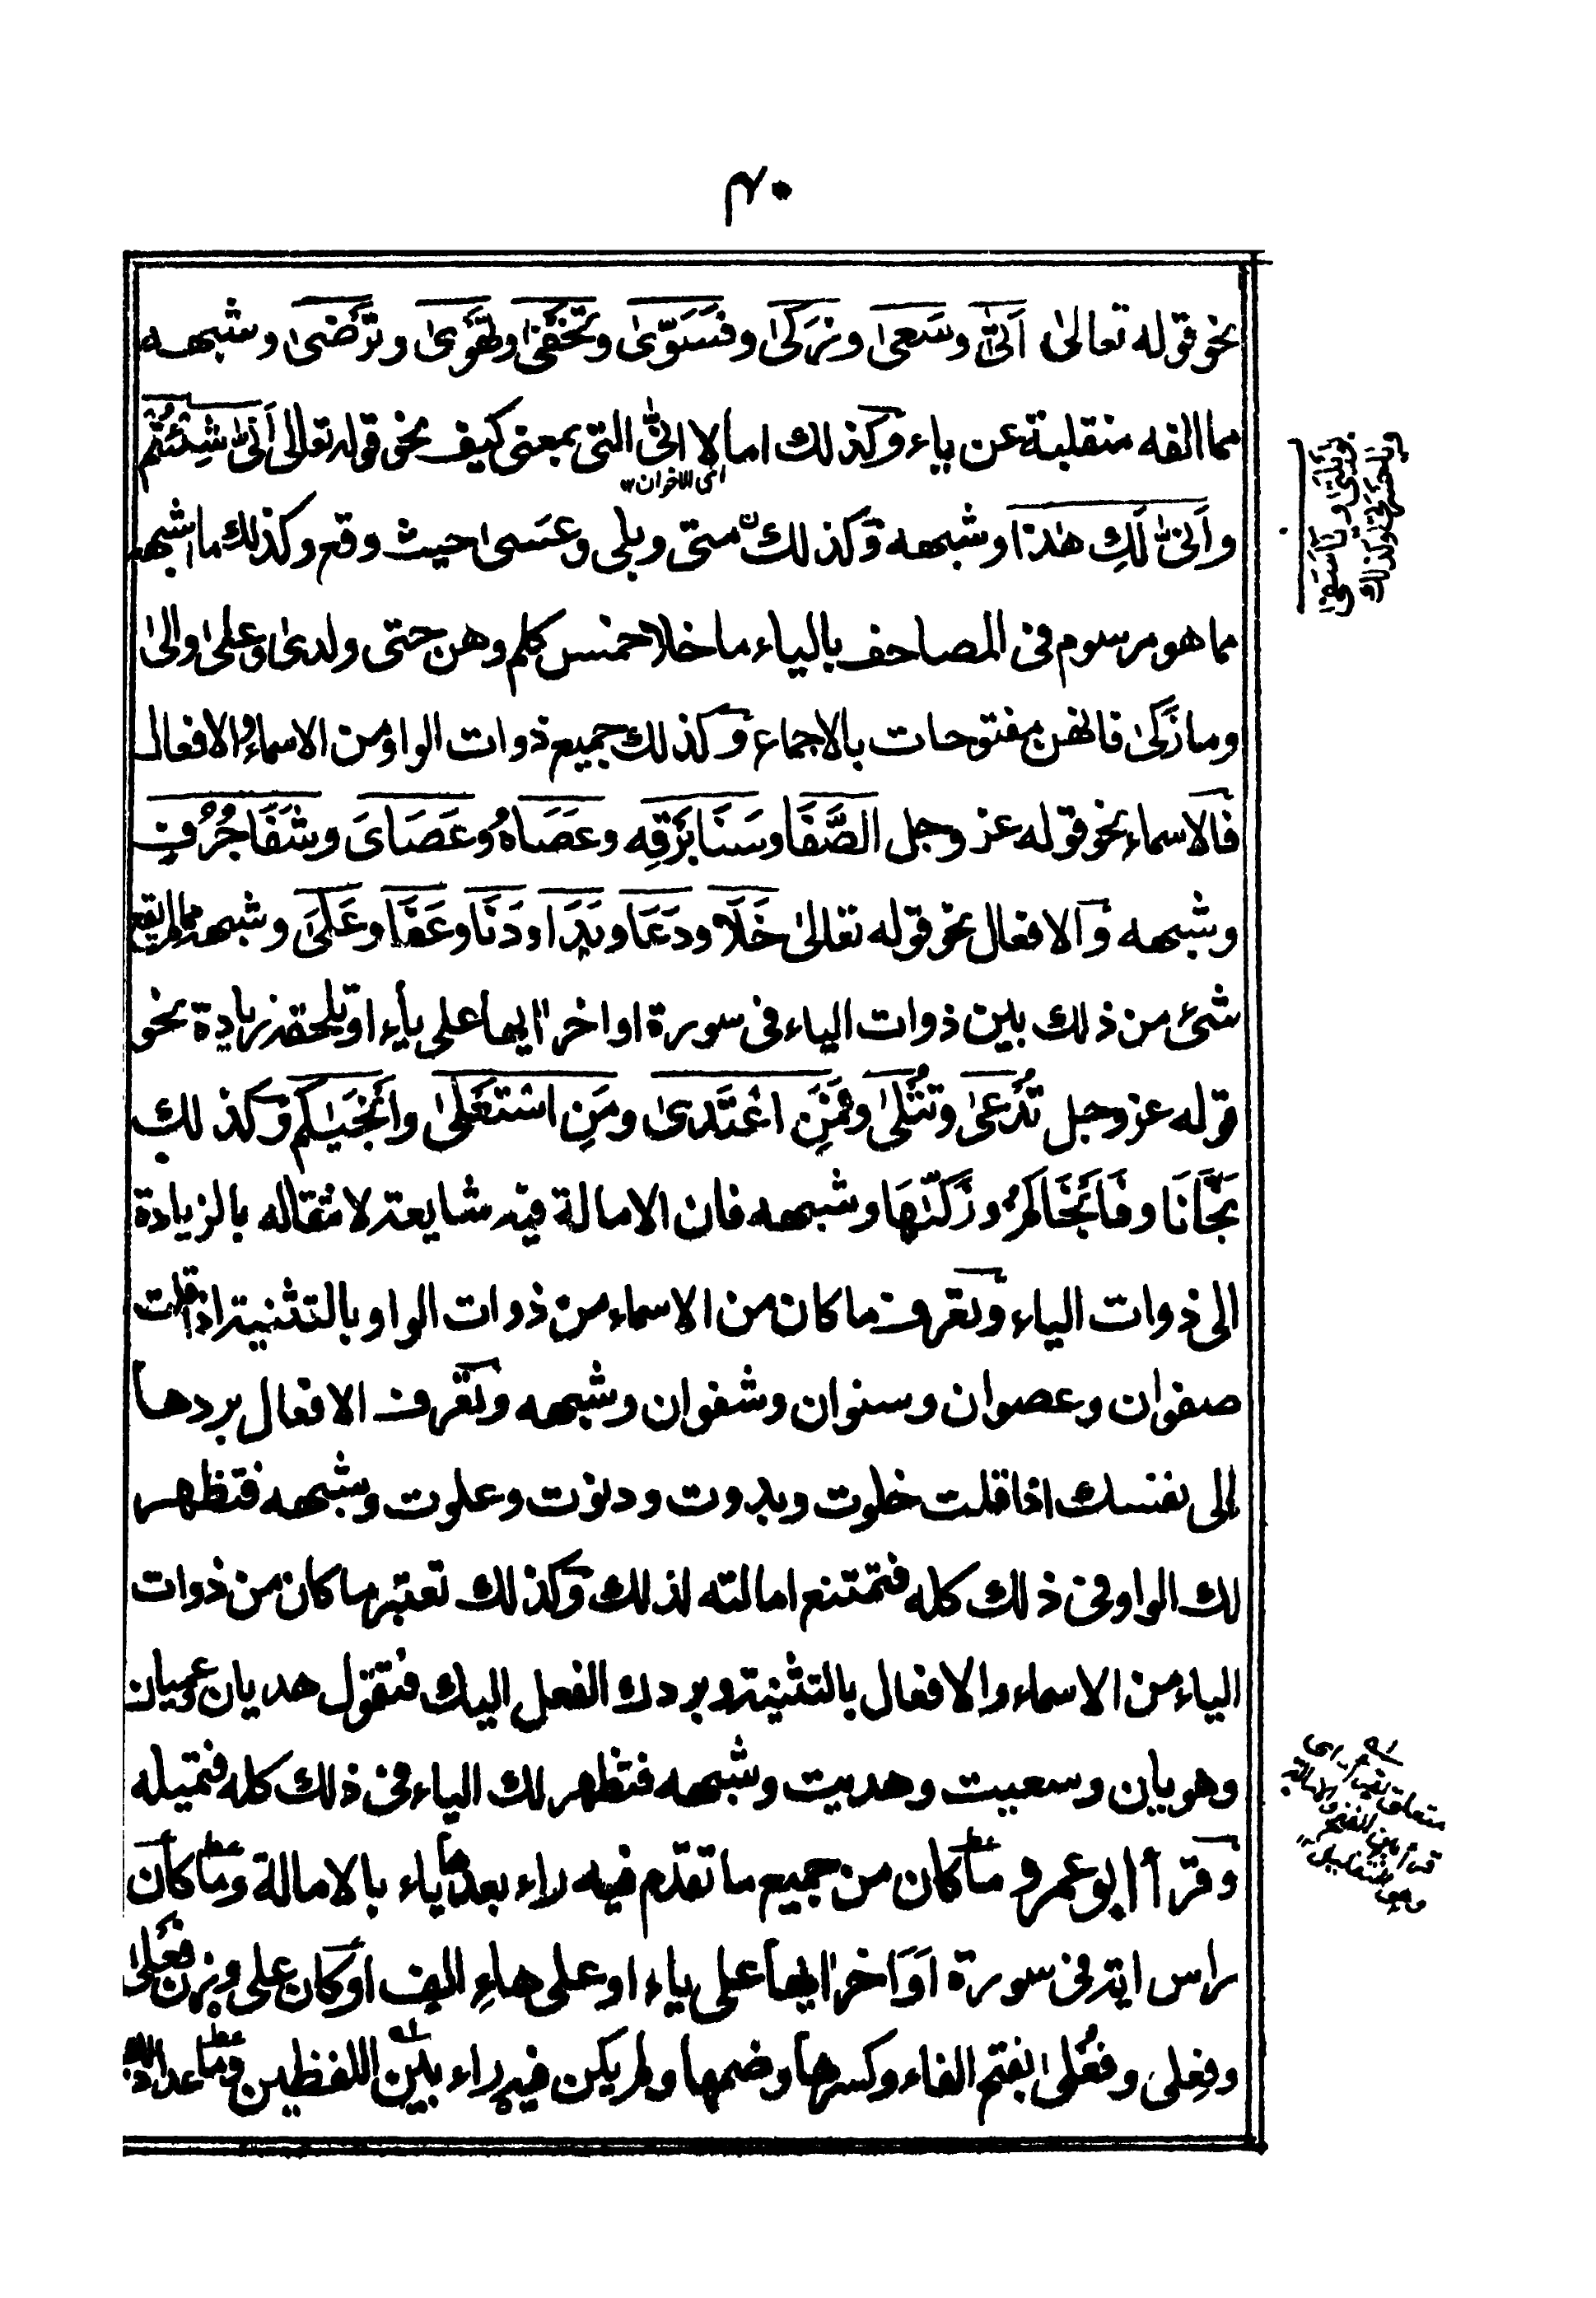 ٤٠
نحو قوله تعالى اَتىٰ وسَعىٰ وزَكىٰ وفَسَوّىٰ وتَخفىٰ وتهوىٰ وتَرضىٰ وشبهه
مما الفه منقلبة عن ياء وكذلك امالا انىّٰ التى بمعنى كيف نحو قوله تعالى اَنىّٰ شِئتُم
اى الاخوان ١٢
واَنىّٰ لَكِ هٰذا وشبهه وكذلك متى وبلى وعَسىٰ حيث وقع وكذلك ما اشبهه
مما هو مرسوم فى المصاحف بالياء ما خلا خمس كلم وهن حتى ولدىٰ وعلىٰ والىٰ
وما زَكىٰ فانهن مفتوحات بالاجماع وكذلك جميع ذوات الواو من الاسماء والافعال
فالاسماء نحو قوله عز وجل الصَّفَا وسَنَا بَرْقِه وعَصَاهُ وعَصَاىَ وشَفَا جُرُفٍ
وشبهه والافعال نحو قوله تعالىٰ خَلَا ودَعَا وبَدَا ودَنَا وعَفَا وعَلىَ وشبهه ما لم يقع
شئ من ذلك بين ذوات الياء فى سورة اواخر اٰيها على ياء او تلحقه زيادة نحو
قوله عز وجل تُدْعىٰ وتُتْلىٰ وفَمَنِ اعْتَدىٰ ومَنِ اسْتَعْلىٰ واَنجَيٰكم وكذلك
نَجَّانَا وفَاَنْجَاكم وزَكّٰهَا وشبهه فان الامالة فيه شايعة لانتقاله بالزيادة
الى ذوات الياء وتعرف ما كان من الاسماء من ذوات الواو بالتثنية اذا قلت
صفوان وعصوان وسنوان وشفوان وشبهه وتعرف الافعال بردها
الى نفسك اذا قلت خلوت وبدوت ودنوت وعلوت وشبهه فتظهر
لك الواو فى ذلك كله فتمتنع امالته لذلك وكذلك تعتبر ما كان من ذوات
الياء من الاسماء والافعال بالتثنية وبردك الفعل اليك فتقول هديان وعميان
وهويان وسعيت وهديت وشبهه فتظهر لك الياء فى ذلك كله فتميله
وقرأ ابو عمرو ما كان من جميع ما تقدّم فيه راء بعدها ياء بالامالة وما كان
راس اية فى سورة اَوَاخر اٰيها على ياء او على هاءِ الف او كان على وزن فَعْلىٰ
وفِعلى وفُعْلىٰ بفتح الفاء وكسرها وضمها ولم يكن فيه راء بين اللفظين وما عدا